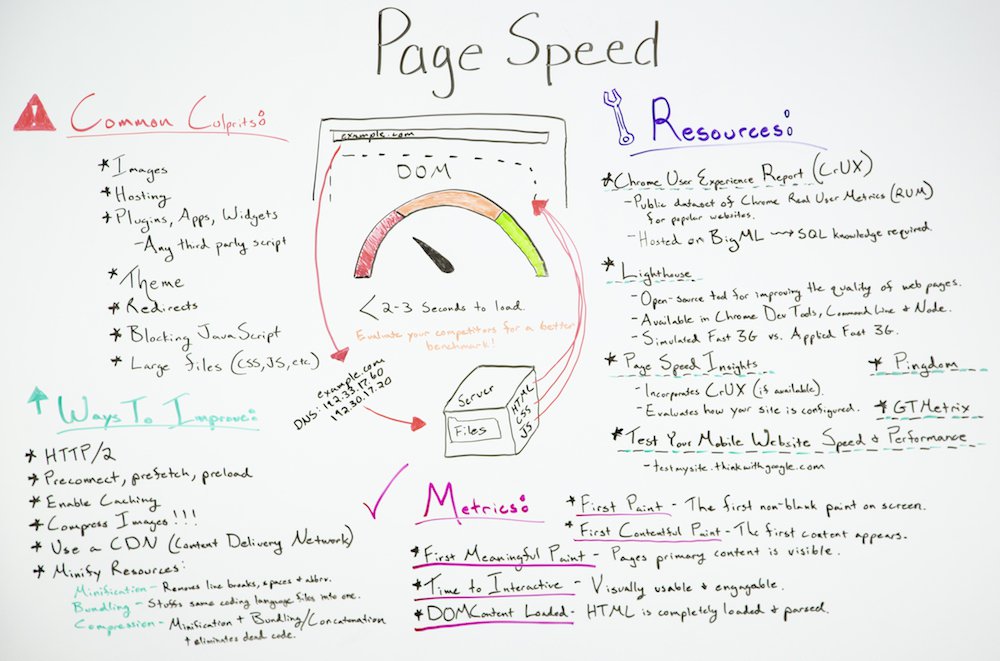 Page Speed
Common Culprits:
* Images
* Hosting
* Plugins, Apps, Widgets
- Any third party script
* Theme
* Redirects
* Blocking JavaScript
* Large files (CSS, JS, etc)
Ways To Improve:
* HTTP/2
* Preconnect, prefetch, preload
* Enable Caching
* Compress Images!!!
* Use a CDN (Content Delivery Network)
* Minify Resources:
Minification - Removes line breaks, spaces & abbrv.
Bundling - Stuffs same coding language files into one.
Compression - Minification + Bundling/Concatenation
+ eliminates dead code.
example.com
DOM
< 2-3 Seconds to load.
Evaluate your competitors for a better
benchmark!
example.com
DNS: 192.33.17.60
192.30.17.20
Server
Files
HTML
CSS
JS
Resources:
* Chrome User Experience Report (CrUX)
- Public dataset of Chrome Real User Metrics (RUM)
for popular websites.
- Hosted on BigML → SQL knowledge required.
* Lighthouse
- Open-source tool for improving the quality of web pages.
- Available in Chrome Dev Tools, Command Line & Node.
- Simulated Fast 3G vs. Applied Fast 3G.
* Page Speed Insights
- Incorporates CrUX (if available).
- Evaluates how your site is configured.
* Pingdom
* GTMetrix
* Test Your Mobile Website Speed & Performance
- testmysite.thinkwithgoogle.com
Metrics:
* First Paint - The first non-blank paint on screen.
* First Contentful Paint - The first content appears.
* First Meaningful Paint - Pages primary content is visible.
* Time to Interactive - Visually usable & engagable.
* DOMContent Loaded - HTML is completely loaded & parsed.